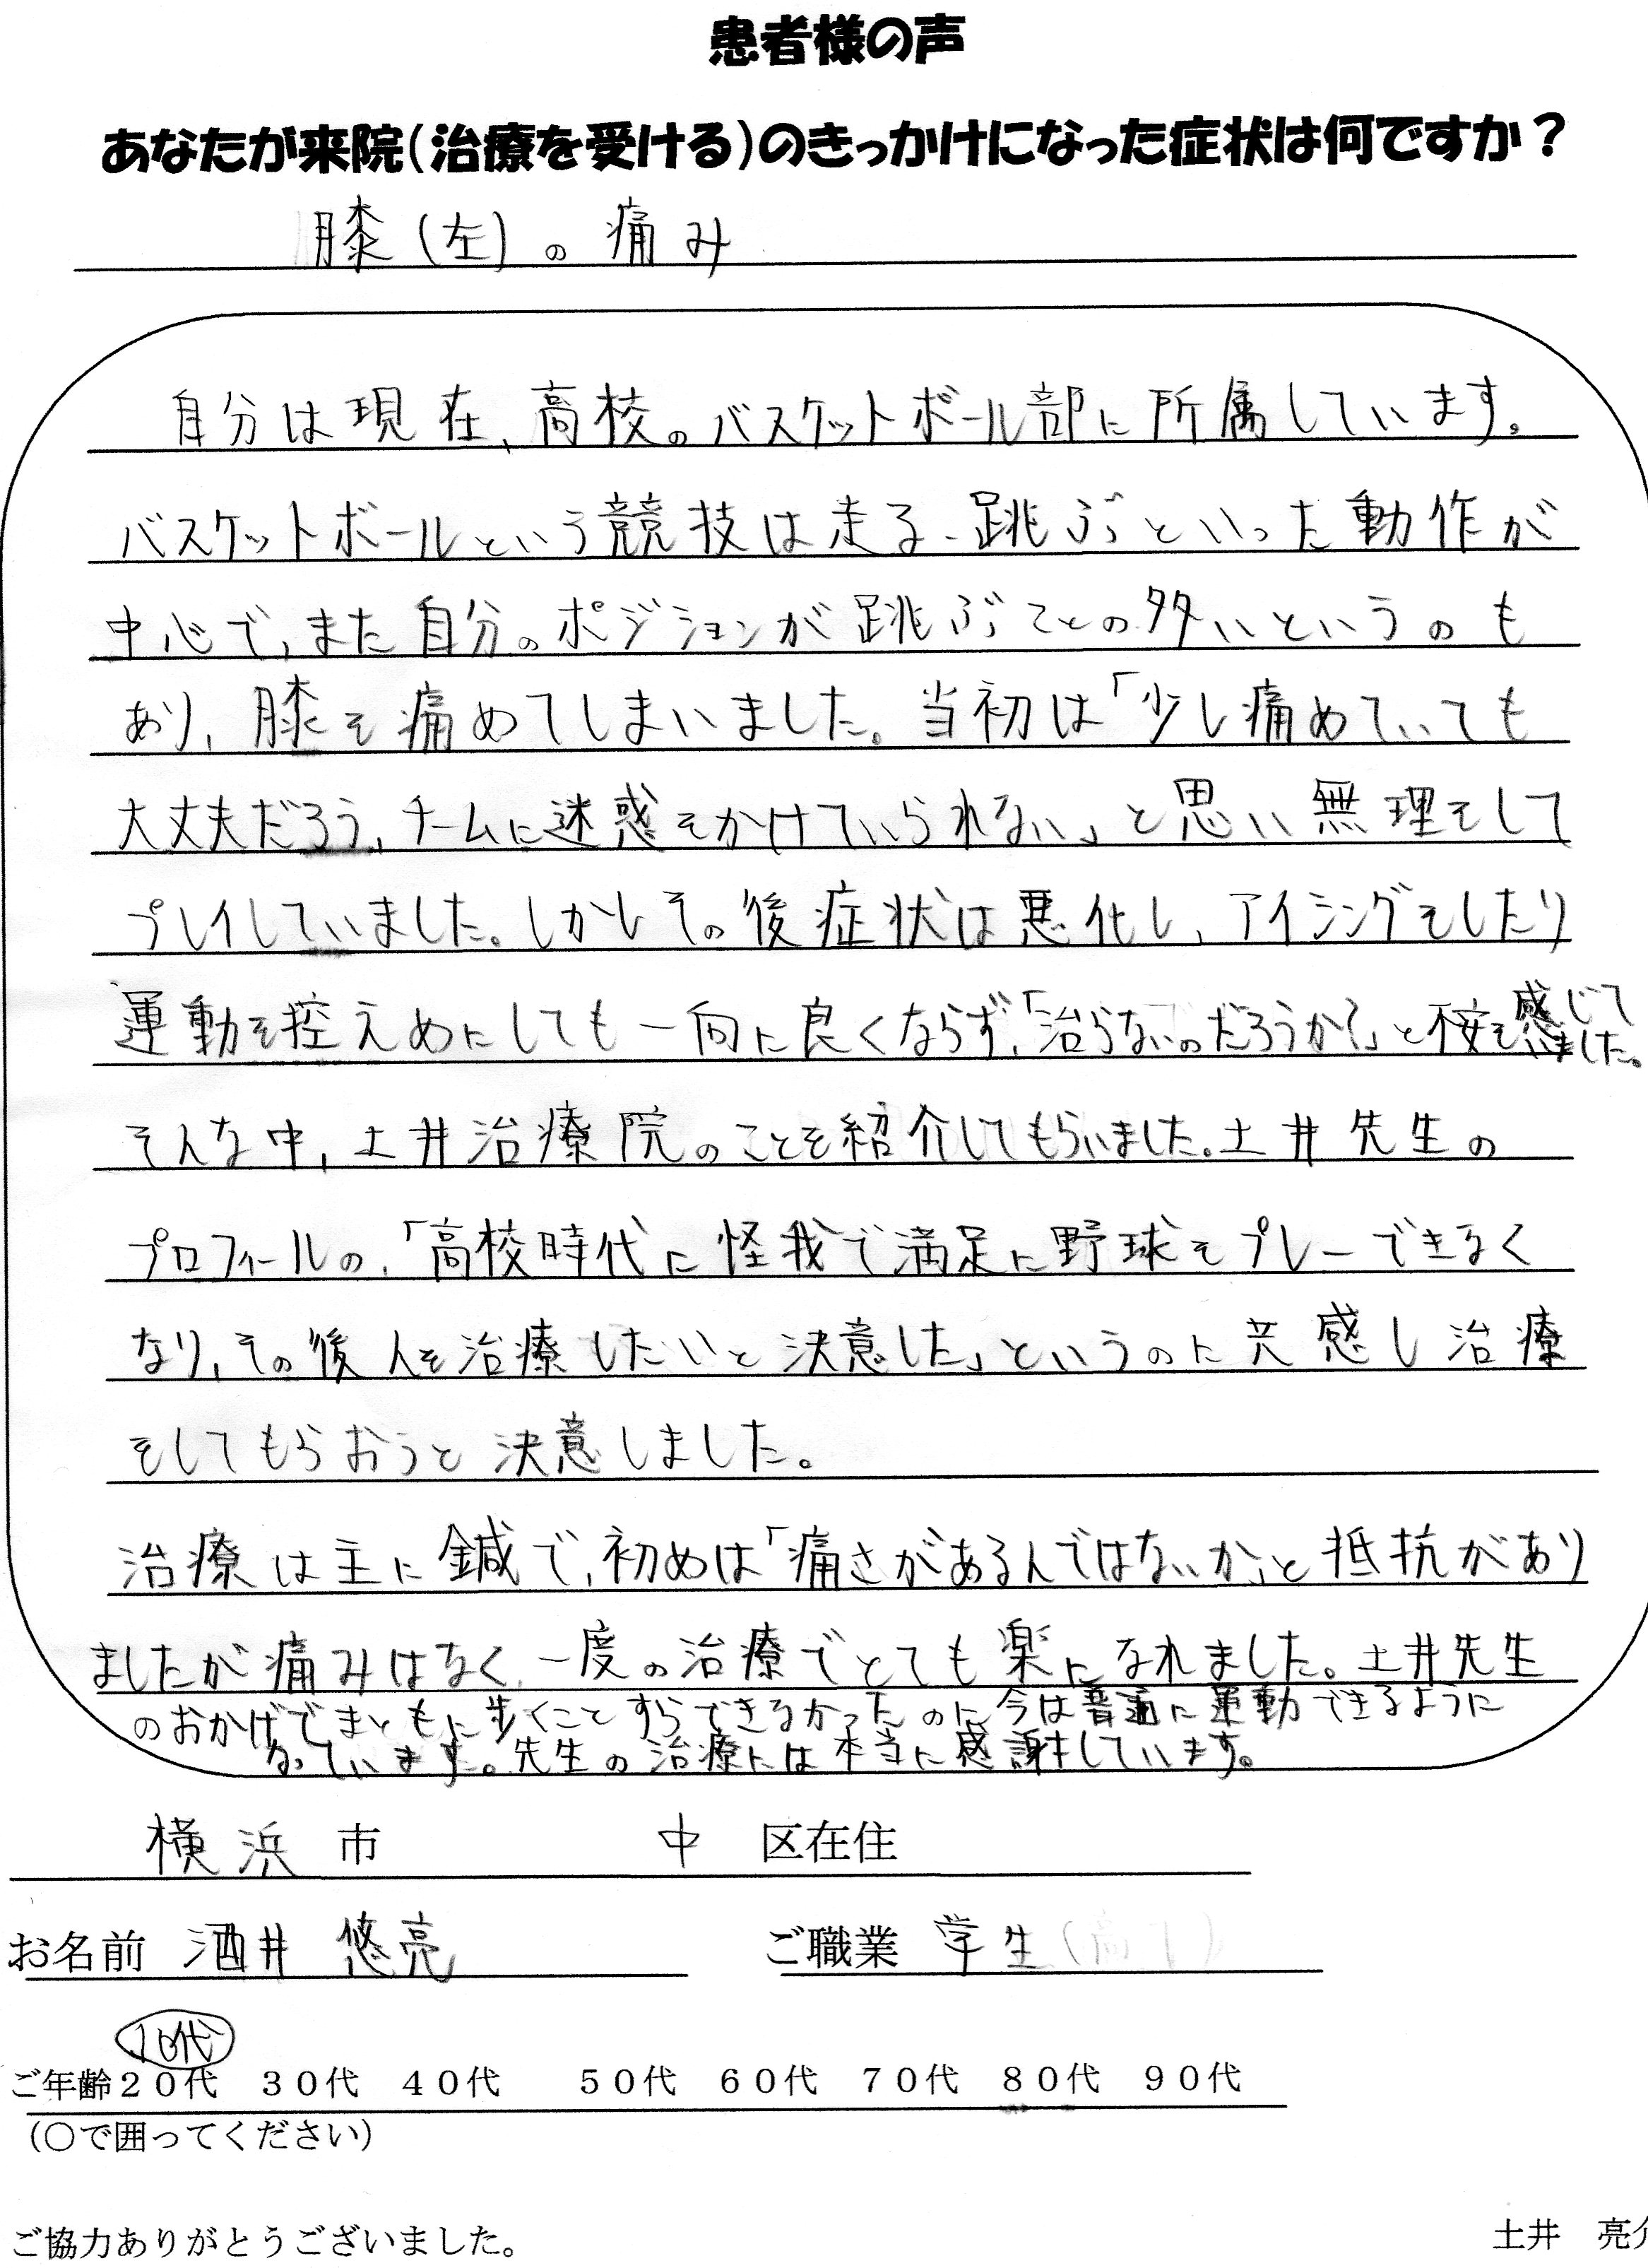 患者様の声
あなたが来院(治療を受ける)のきっかけになった症状は何ですか?
膝(左)の痛み
自分は現在、高校のバスケットボール部に所属しています。
バスケットボールという競技は走る、跳ぶといった動作が
中心で、また自分のポジションが跳ぶことの多いというのも
あり、膝を痛めてしまいました。当初は「少し痛めていても
大丈夫だろう、チームに迷惑をかけていられない」と思い無理をして
プレイしていました。しかしその後症状は悪化し、アイシングをしたり
運動を控えめにしても一向に良くならず、「治らないのだろうか?」と不安を感じて
いました。
そんな中、土井治療院のことを紹介してもらいました。土井先生の
プロフィールの、「高校時代に怪我で満足に野球をプレーできなく
なり、その後人を治療したいと決意した」というのに共感し治療
をしてもらおうと決意しました。
治療は主に鍼で、初めは「痛さがあるんではないか」と抵抗があり
ましたが痛みはなく、一度の治療でとても楽になれました。土井先生
のおかげでまともに歩くことすらできなかったのに今は普通に運動できるように
なっています。先生の治療には本当に感謝しています。
横浜市 中区在住
お名前 酒井 悠亮 ご職業 学生
10代
ご年齢20代 30代 40代 50代 60代 70代 80代 90代
(〇で囲ってください)
ご協力ありがとうございました。 土井 亮介